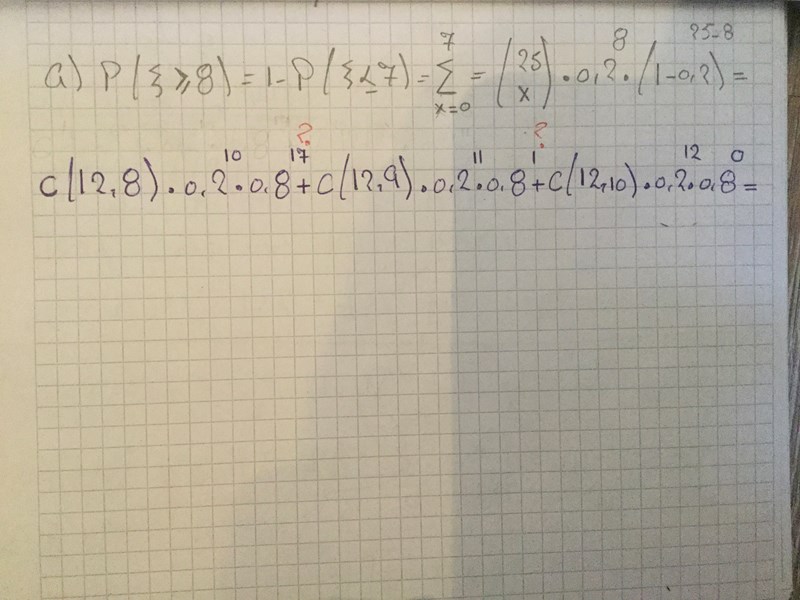 a) P(ξ ≥ 8) = 1 - P(ξ ≤ 7) = ∑_{x=0}^{7} = (25 x) · 0,2^8 · (1-0,2)^{25-8} =
C(12,8) · 0,2^10 · 0,8^17 ? + C(12,9) · 0,2^11 · 0,8^1 ? + C(12,10) · 0,2^12 · 0,8^0 =